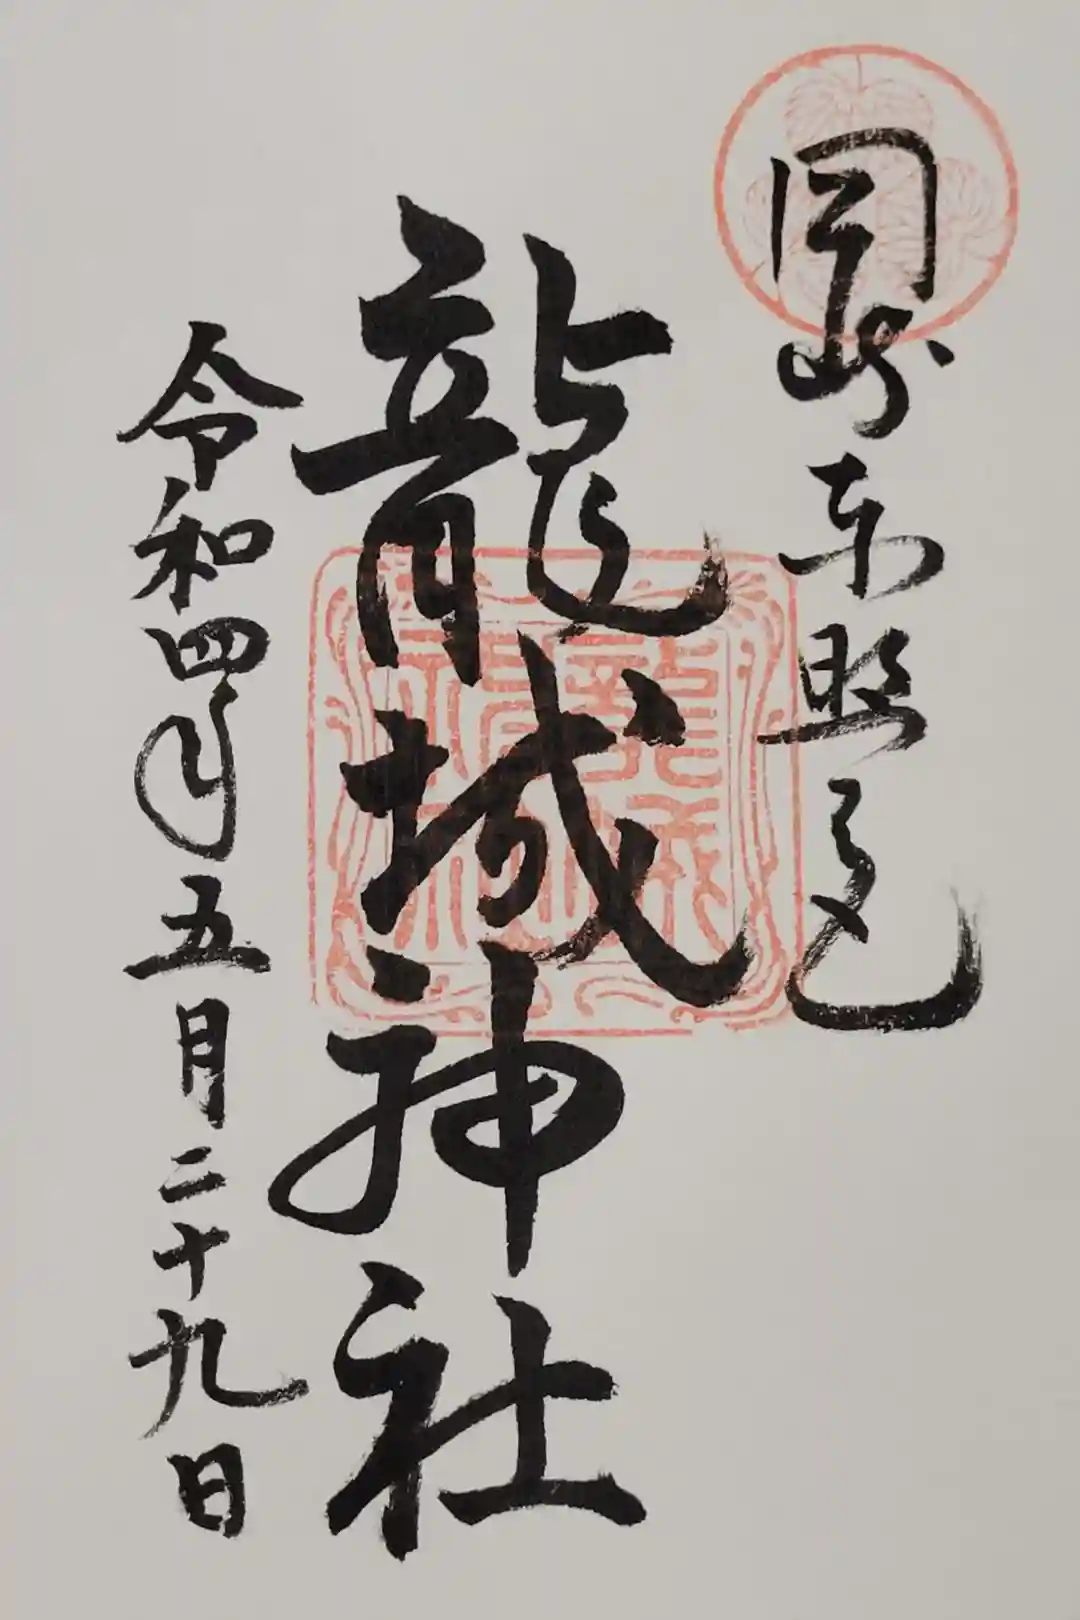 岡崎東照宮
龍城神社
令和四年五月二十九日
龍城神社